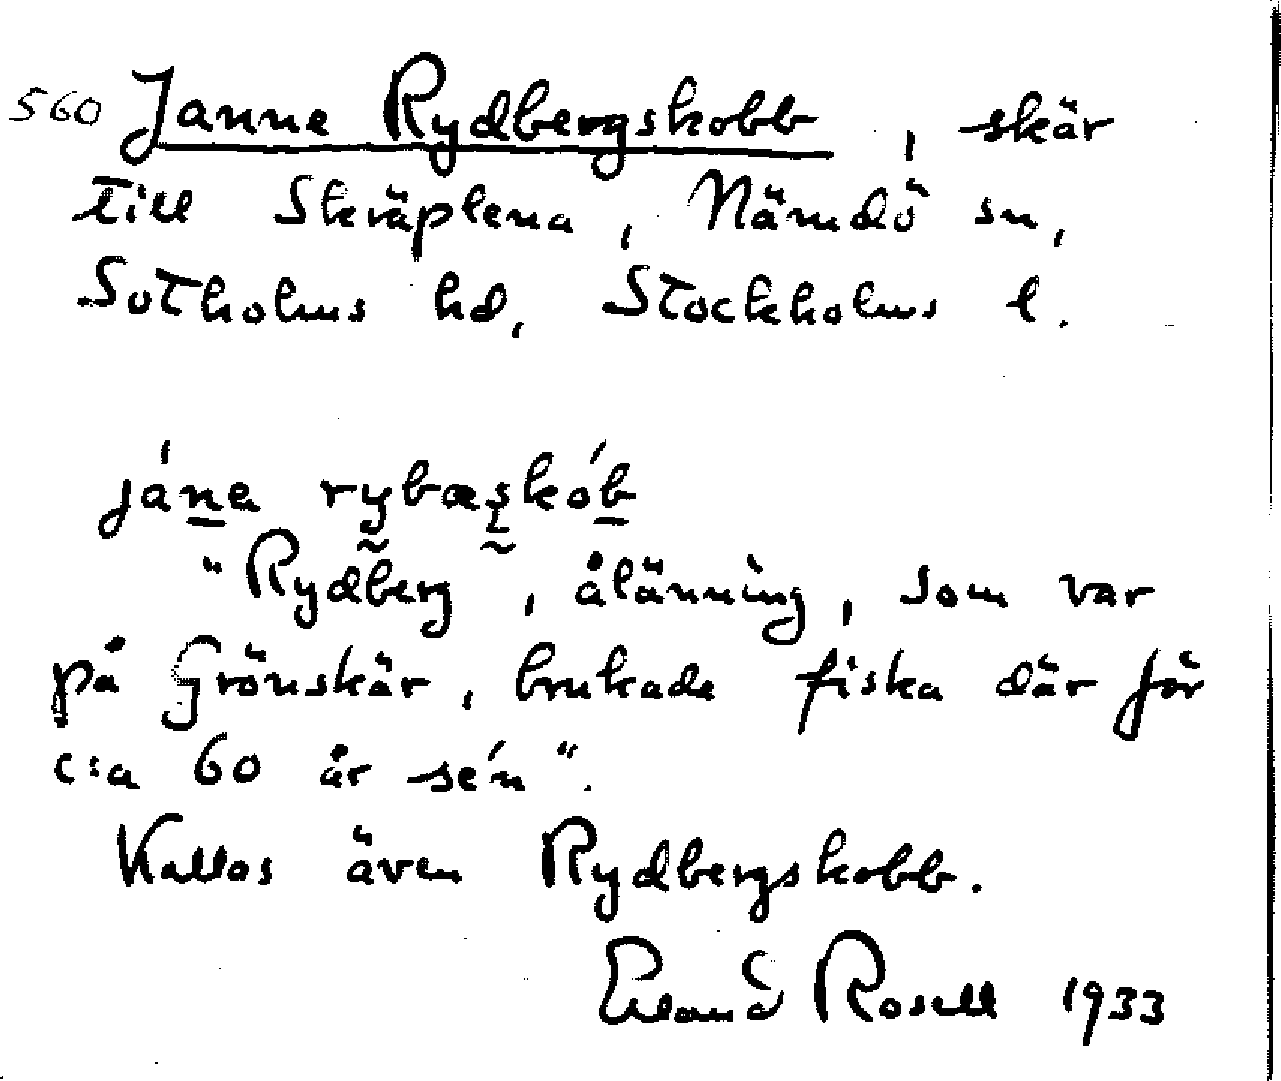 560 Janne Rydbergskobb, skär
till Skräplena, Nämdö sn,
Sotholms hd, Stockholms l.
"Rydberg, ålänning, som var
på Grönskär, brukade fiska där för
c:a 60 år se'n".
Kallas även Rydbergskobb.
Erland Rosell 1933